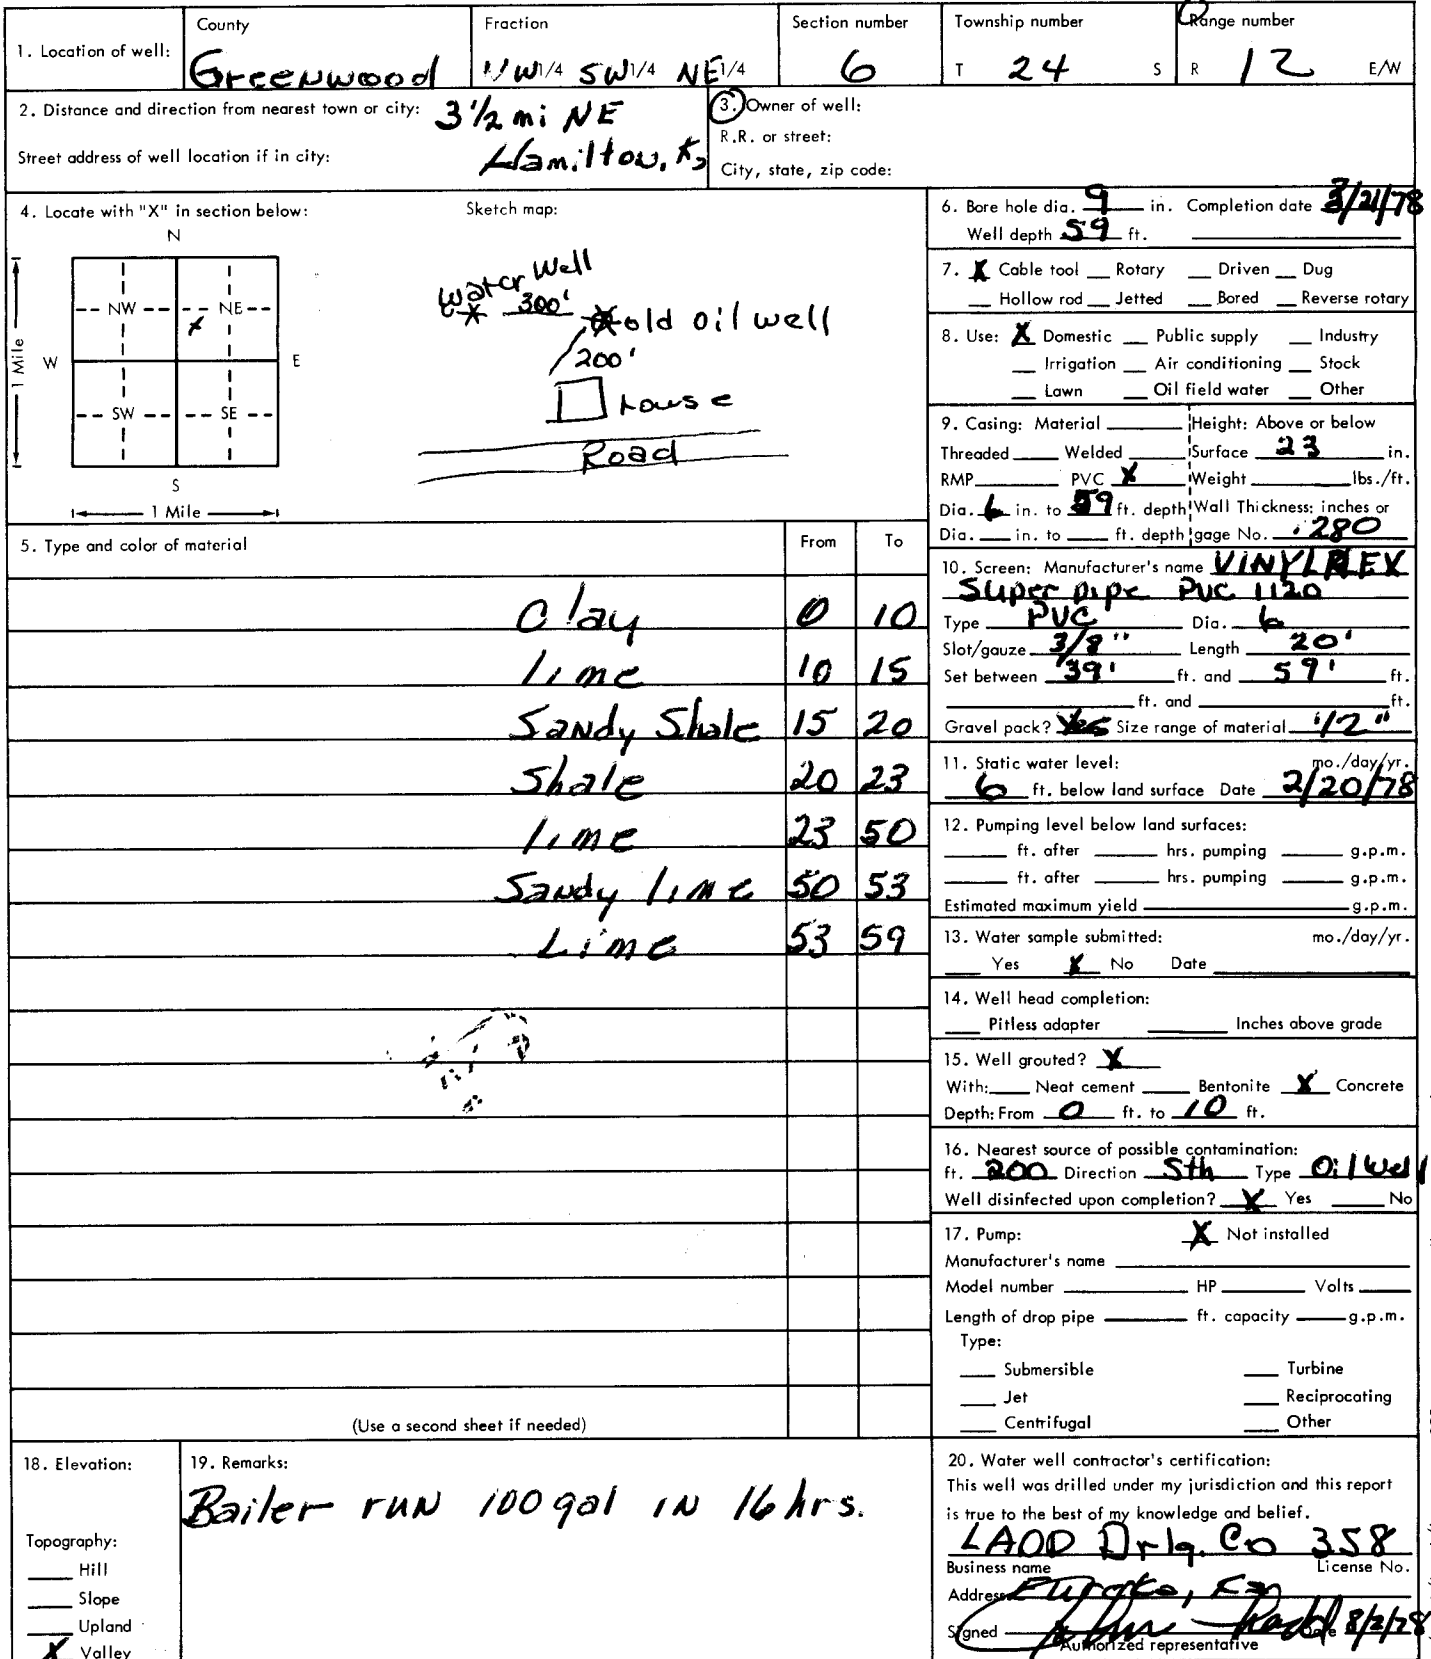 County Fraction Section number Township number Range number
1. Location of well: Greenwood NW1/4 SW1/4 NE1/4 6 T 24 S R 12 E/W
2. Distance and direction from nearest town or city: 3 1/2 mi NE
Street address of well location if in city: Hamilton, Ks
3. Owner of well:
R.R. or street:
City, state, zip code:
4. Locate with "X" in section below:
N
NW NE
X
W E
1 Mile
SW SE
S
1 Mile
Sketch map:
Water Well
300'
old oil well
200'
House
Road
5. Type and color of material From To
Clay 0 10
lime 10 15
Sandy Shale 15 20
Shale 20 23
lime 23 50
Sandy lime 50 53
Lime 53 59
(Use a second sheet if needed)
6. Bore hole dia. 9 in. Completion date /21/78
Well depth 59 ft.
7. X Cable tool Rotary Driven Dug
Hollow rod Jetted Bored Reverse rotary
8. Use: X Domestic Public supply Industry
Irrigation Air conditioning Stock
Lawn Oil field water Other
9. Casing: Material Height: Above or below
Threaded Welded Surface 23 in.
RMP PVC X Weight lbs./ft.
Dia. 6 in. to 59 ft. depth Wall Thickness: inches or
Dia. in. to ft. depth gage No. .280
10. Screen: Manufacturer's name VINYLPLEX
Super pipe PVC 1120
Type PVC Dia. 6
Slot/gauze 3/8" Length 20'
Set between 39' ft. and 59' ft.
ft. and ft.
Gravel pack? Yes Size range of material 1/2"
11. Static water level: mo./day/yr.
6 ft. below land surface Date 2/20/78
12. Pumping level below land surfaces:
ft. after hrs. pumping g.p.m.
ft. after hrs. pumping g.p.m.
Estimated maximum yield g.p.m.
13. Water sample submitted: mo./day/yr.
Yes X No Date
14. Well head completion:
Pitless adapter Inches above grade
15. Well grouted? X
With: Neat cement Bentonite X Concrete
Depth: From 0 ft. to 10 ft.
16. Nearest source of possible contamination:
ft. 200 Direction Sth Type Oil Well
Well disinfected upon completion? X Yes No
17. Pump: X Not installed
Manufacturer's name
Model number HP Volts
Length of drop pipe ft. capacity g.p.m.
Type:
Submersible Turbine
Jet Reciprocating
Centrifugal Other
18. Elevation:
Topography:
Hill
Slope
Upland
X Valley
19. Remarks:
Bailer run 100 gal in 16 hrs.
20. Water well contractor's certification:
This well was drilled under my jurisdiction and this report
is true to the best of my knowledge and belief.
Drlg. Co 358
Business name License No.
Address Eureka, Kan
Signed John Date
Authorized representative